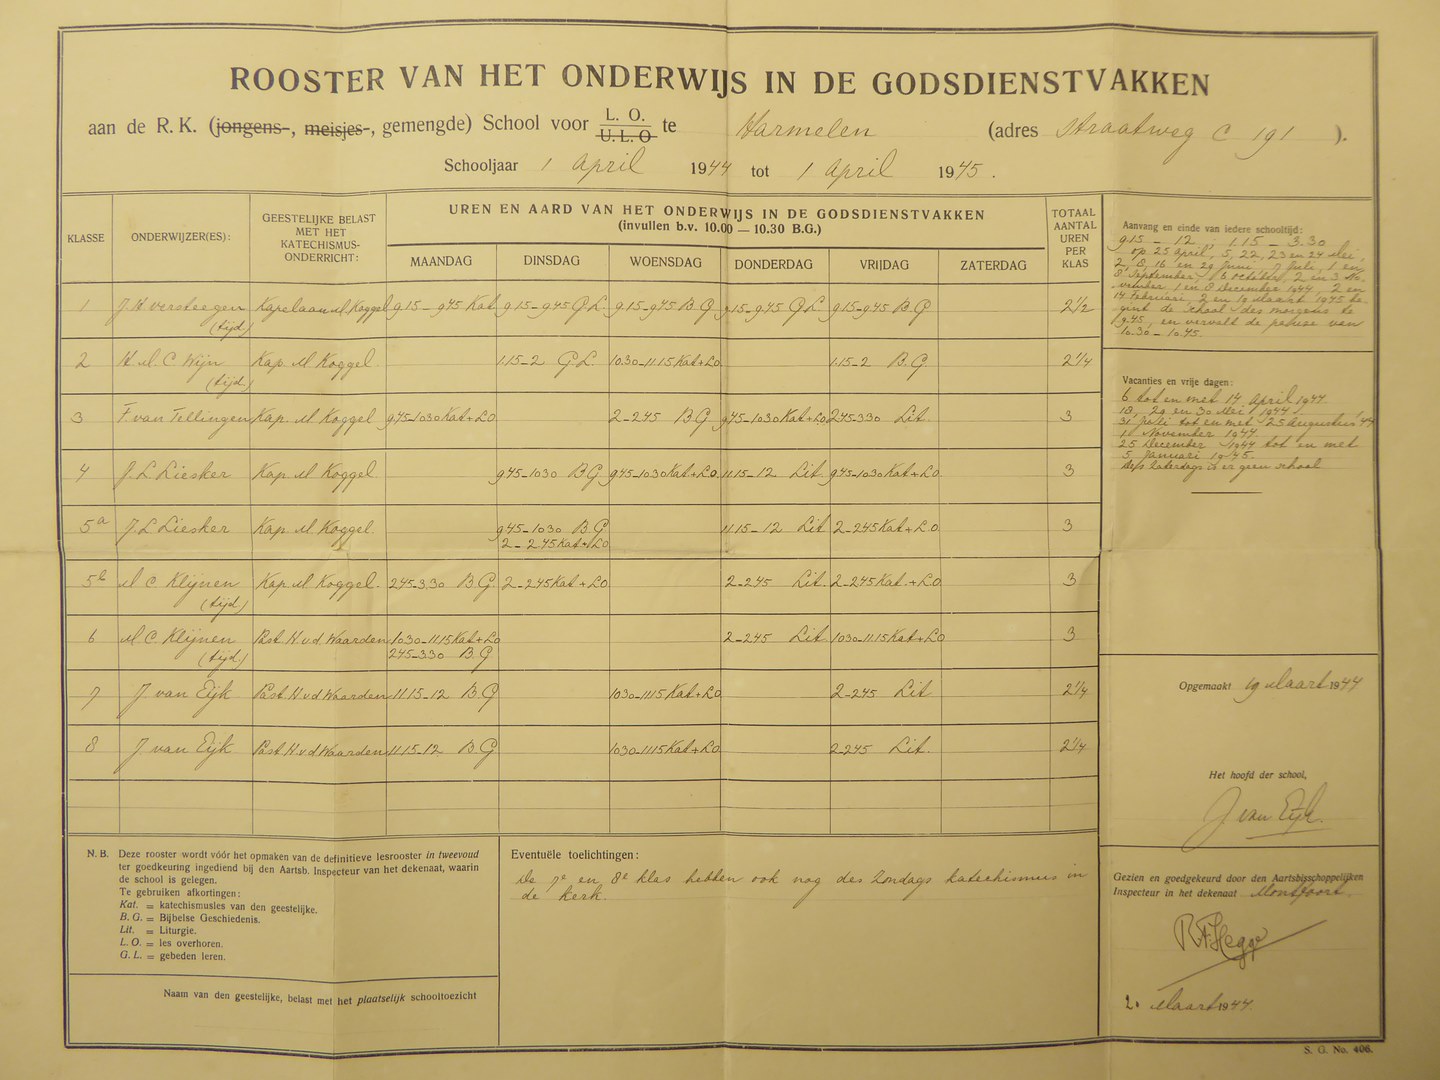 ROOSTER VAN HET ONDERWIJS IN DE GODSDIENSTVAKKEN
aan de R. K. (jongens-, meisjes-, gemengde) School voor L. O. / U. L. O te Harmelen (adres Straatweg C 191 ).
Schooljaar 1 April 1944 tot 1 April 1945.
KLASSE ONDERWIJZER(ES): GEESTELIJKE BELAST MET HET KATECHISMUS-ONDERRICHT: UREN EN AARD VAN HET ONDERWIJS IN DE GODSDIENSTVAKKEN TOTAAL AANTAL UREN PER KLAS
(invullen b.v. 10.00 — 10.30 B.G.)
MAANDAG DINSDAG WOENSDAG DONDERDAG VRIJDAG ZATERDAG
1 J. H. versteegen (tijd) Kapelaan M Koggel 9.15-9.45 Kat 9.15-9.45 G L 9.15-9.45 B G 9.15-9.45 G L 9.15-9.45 B G 2½
2 H. M. C Wijn (tijd.) Kap. M Koggel 1.15-2 G L. 10.30-11.15 Kat+LO 1.15-2 B. G 2¼
3 F. van Tellingen Kap. M Koggel 9.45-10.30 Kat+LO 2-2.45 B G 9.45-10.30 Kat+LO 2.45-3.30 Lit. 3
4 J. L. Liesker Kap. M Koggel 9.45-10.30 B G 9.45-10.30 Kat+LO 11.15-12 Lit 9.45-10.30 Kat+LO 3
5a J. L Liesker Kap. M. Koggel 9.45-10.30 B. G 11.15-12 Lit 2-2.45 Kat+L.O 3
2-2.45 Kat+LO
5b M C Klijnen (tijd.) Kap. M Koggel. 2.45-3.30 B. G 2-2.45 Kat+LO 2-2.45 Lit. 2-2.45 Kat.+LO 3
6 M C Klijnen (tijd.) Past. H. v d Waarden 10.30-11.15 Kat+LO 2-2.45 Lit 10.30-11.15 Kat+LO 3
2.45-3.30 B. G
7 J van Eijk Past H v d Waarden 11.15-12 B. G 10.30-11.15 Kat+LO 2-2.45 Lit 2¼
8 J van Eijk Past. H. v d Waarden 11.15-12 B G 10.30-11.15 Kat+LO 2-2.45 Lit. 2¼
Aanvang en einde van iedere schooltijd:
9.15 - 12, 1.15 - 3.30
op 25 April, 5, 22, 23 en 24 Mei,
2, 8, 16 en 29 Juni, 7 Juli, 1 en
8 September, 6 October, 2 en 3 No-
vember, 1 en 8 December 1944, 2 en
14 Februari, 2 en 19 Maart 1945 be-
gint de school des morgens te
9.45, en vervalt de pauze van
10.30 - 10.45.
Vacanties en vrije dagen:
6 tot en met 14 April 1944.
18, 29 en 30 Mei 1944
31 Juli tot en met 25 Augustus '44
1 November 1944.
25 December 1944 tot en met
5 Januari 1945.
des Zaterdags is er geen school
Opgemaakt 19 Maart 1944
Het hoofd der school,
J van Eijk.
Gezien en goedgekeurd door den Aartsbisschoppelijken
Inspecteur in het dekenaat Montfoort.
Maart 1944.
N. B. Deze rooster wordt vóór het opmaken van de definitieve lesrooster in tweevoud
ter goedkeuring ingediend bij den Aartsb. Inspecteur van het dekenaat, waarin
de school is gelegen.
Te gebruiken afkortingen:
Kat. = katechismusles van den geestelijke.
B. G. = Bijbelse Geschiedenis.
Lit. = Liturgie.
L. O. = les overhoren.
G. L. = gebeden leren.
Naam van den geestelijke, belast met het plaatselijk schooltoezicht
Eventuële toelichtingen:
De 7e en 8e klas hebben ook nog des Zondags katechismus in
de kerk.
S. G. No. 406.